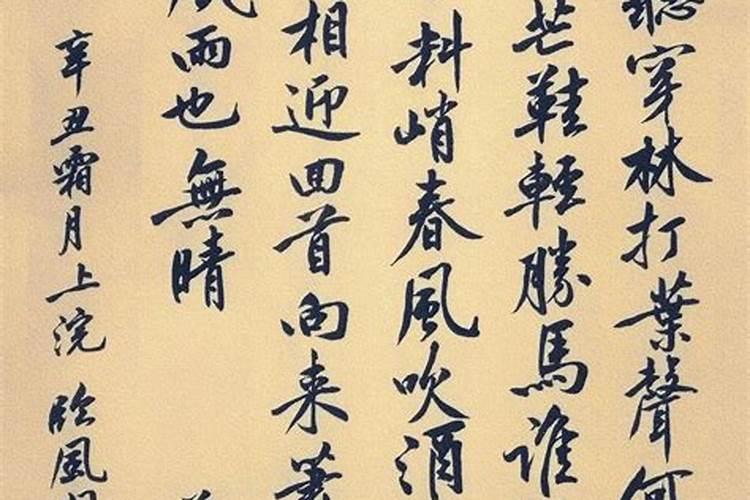 聽穿林打葉聲何
芒鞋輕勝馬誰
料峭春風吹酒
相迎回首向来蕭
風雨也無晴
辛丑霜月上浣 臨風